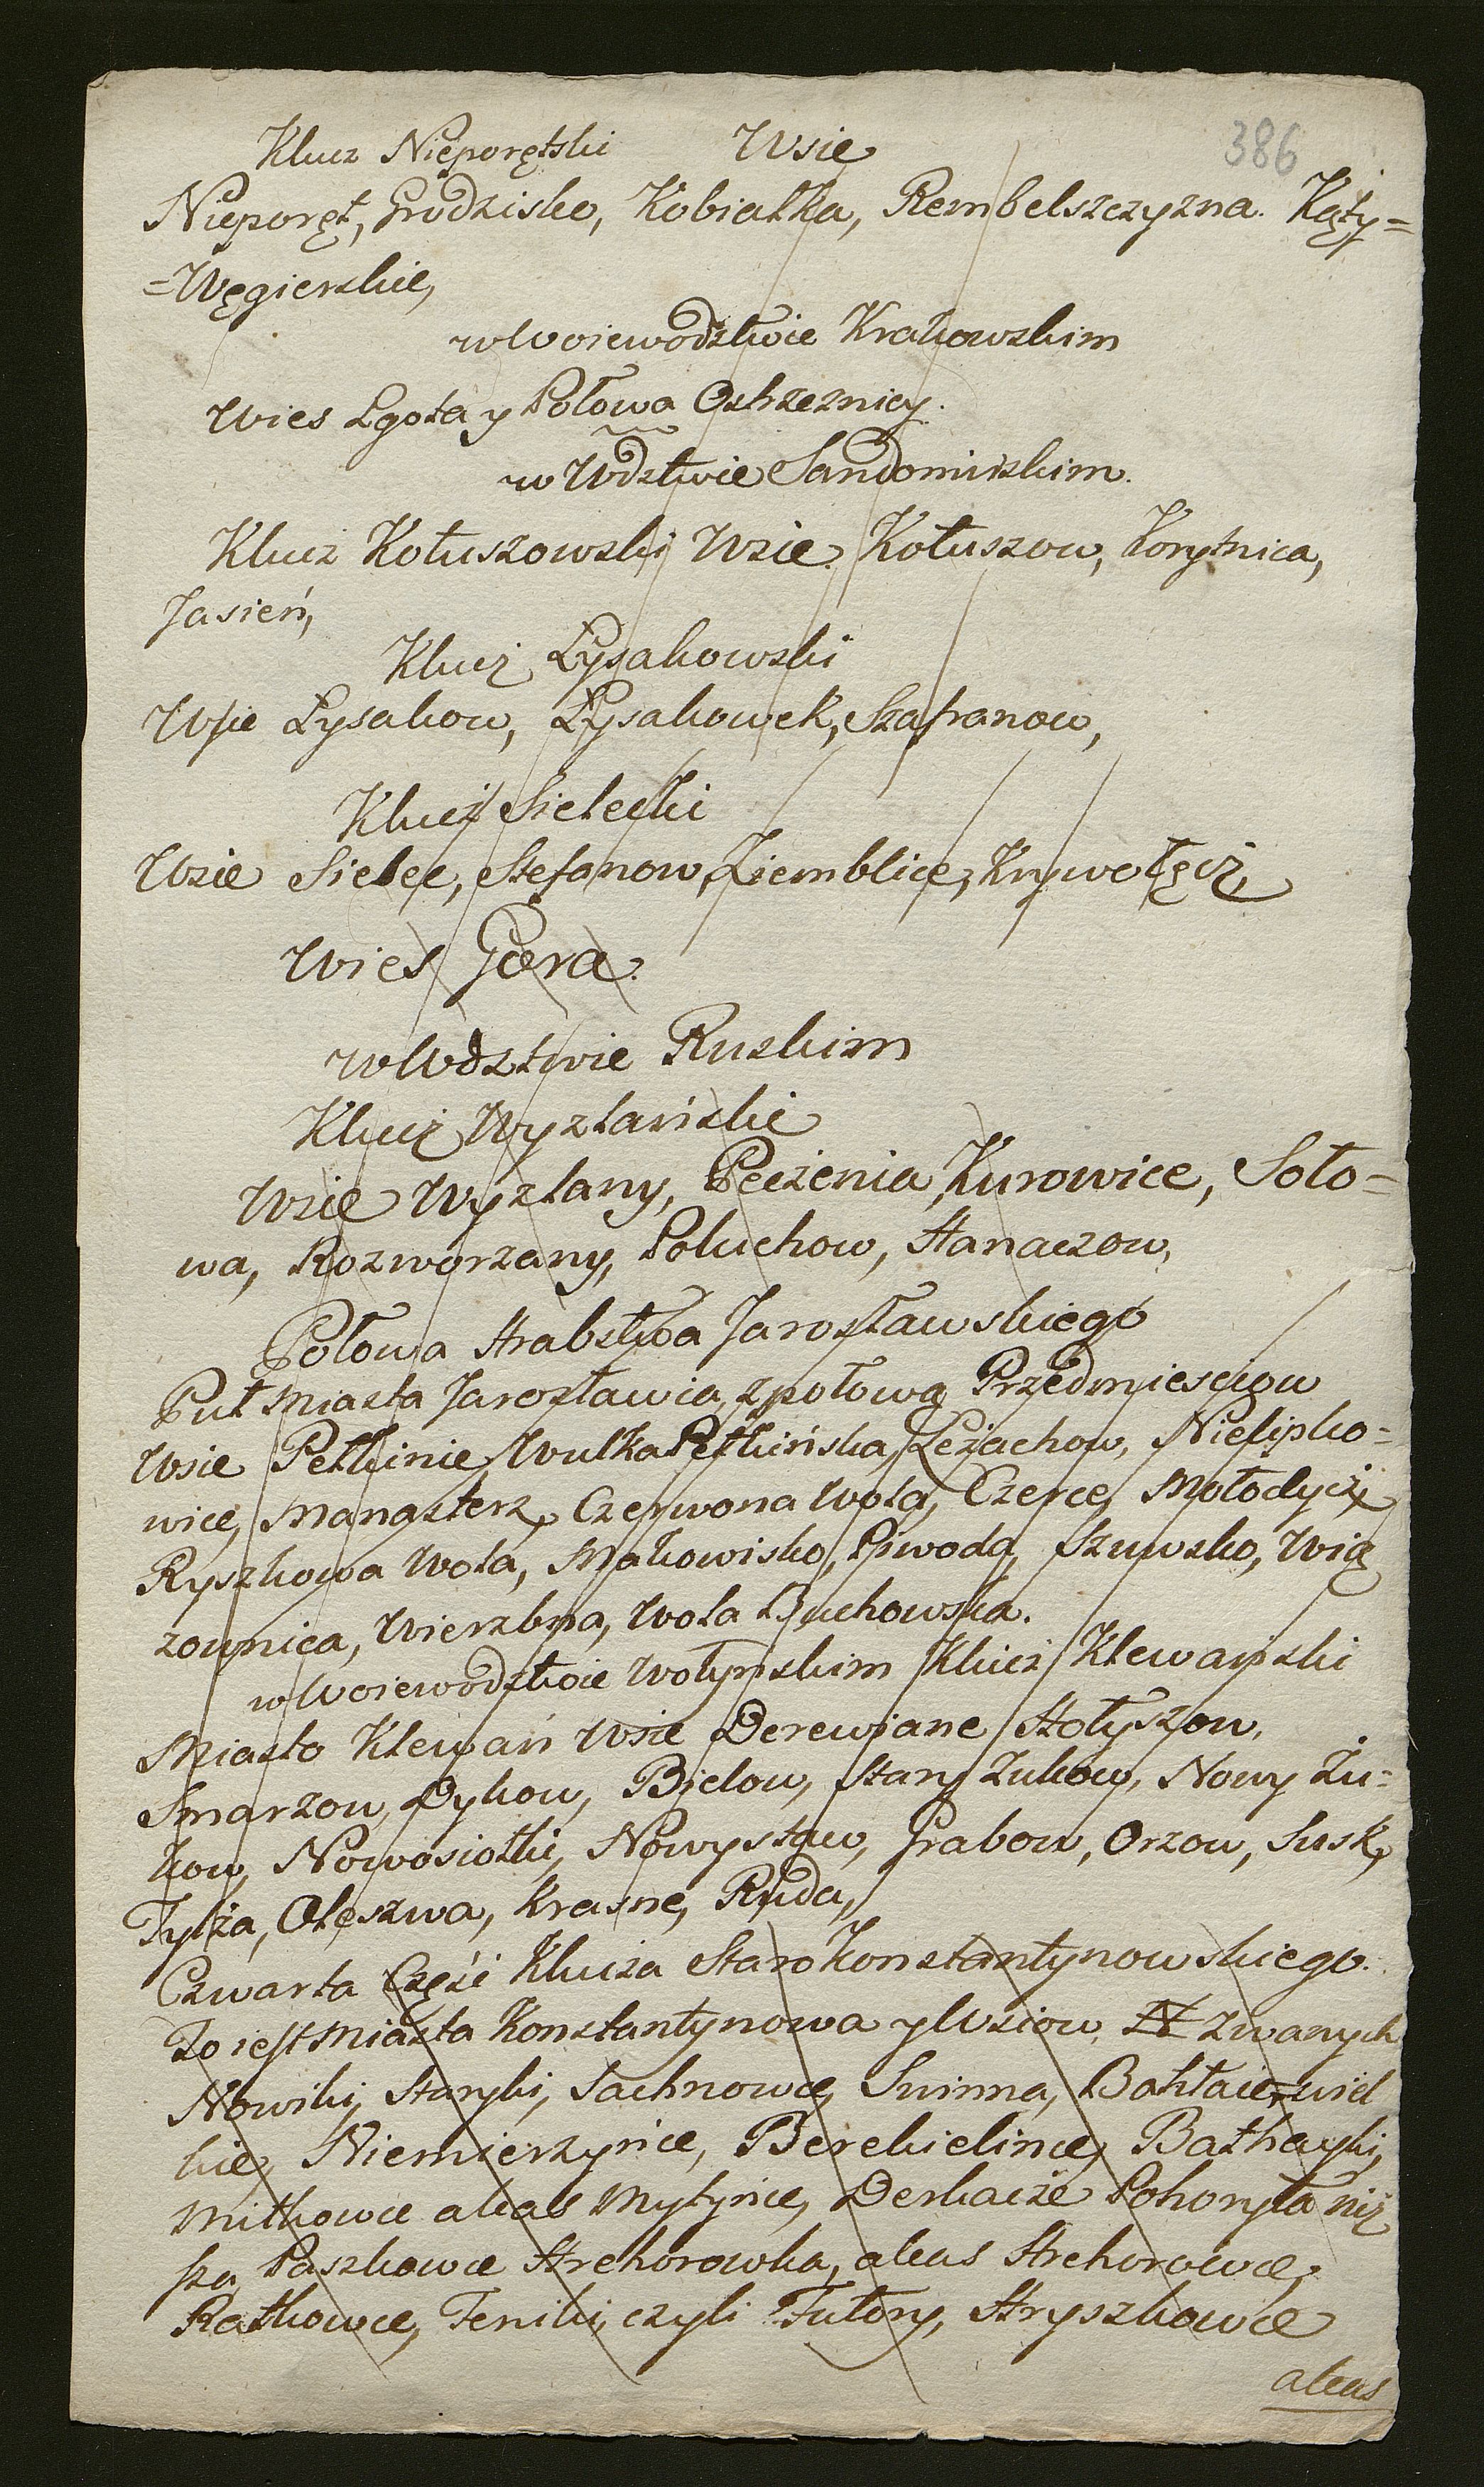 386
Klucz Nieporętski Wsie
Nieporęt, Grodzisko, Kobiałka, Rembelszczyzna. Kąty=
=Węgierskie,
w Woiewodztwie Krakowskim
Wies Lgota y Połowa Ostrzeznicy.
w Wdztwie Sandomirskim.
Klucz Kotuszowski Wsie Kotuszow, Korytnica,
Jasień,
Klucz Łysakowski
Wsie Łysakow, Łysakowek, Szafranow,
Klucz Sielecki
Wsie Sielec, Stefanow, Ziemblice, Krywołęcz,
Wies Gora.
w Wdztwie Ruskim
Klucz Wyzlański
Wsie Wyzlany, Peczenia, Kurowice, Soło=
wa, Rozworzany, Poluchow, Hanaczow,
Połowa Hrabstwa Jarosławskiego
Puł Miasta Jarosławia, z połową Przedmiesciow
Wsie Pełkinie, Wulka Pełkińska, Leżachow, Nielipko=
wice, Manasterz, Czerwona Wola, Czerce, Mołodycz,
Ryszkowa Wola, Makowisko, Piwoda, Szuwsko, Wią
zownica, Wierzbna, Wola Buchowska.
w Woiewodztwie Wołynskim Klucz Klewański
Miasto Klewań Wsie Derewiane, Hołyszow,
Smarzow, Dykow, Bielow, Stary Zukow, Nowy Żu=
kow, Nowosiołki, Nowystaw, Grabow, Orzow, Susk,
Tylża, Oleszwa, Krasne, Ruda,
Czwarta Część Klucza Staro Konstantynowskiego.
To iest Miasta Konstantynowa y Wsiow, N zwanych
Nowiki, Staryki, Sachnowce, Swinna, Bahłaie wiel
kie, Niemierzynce, Berekielince, Bathayki,
Mitkowce alias Mytynce, Derkacze Pohoryła niz
sza, Paszkowce Hrehorowka, alias Hrehorowce,
Ratkowce, Feniki, czyli Futory, Hryszkowce
alias